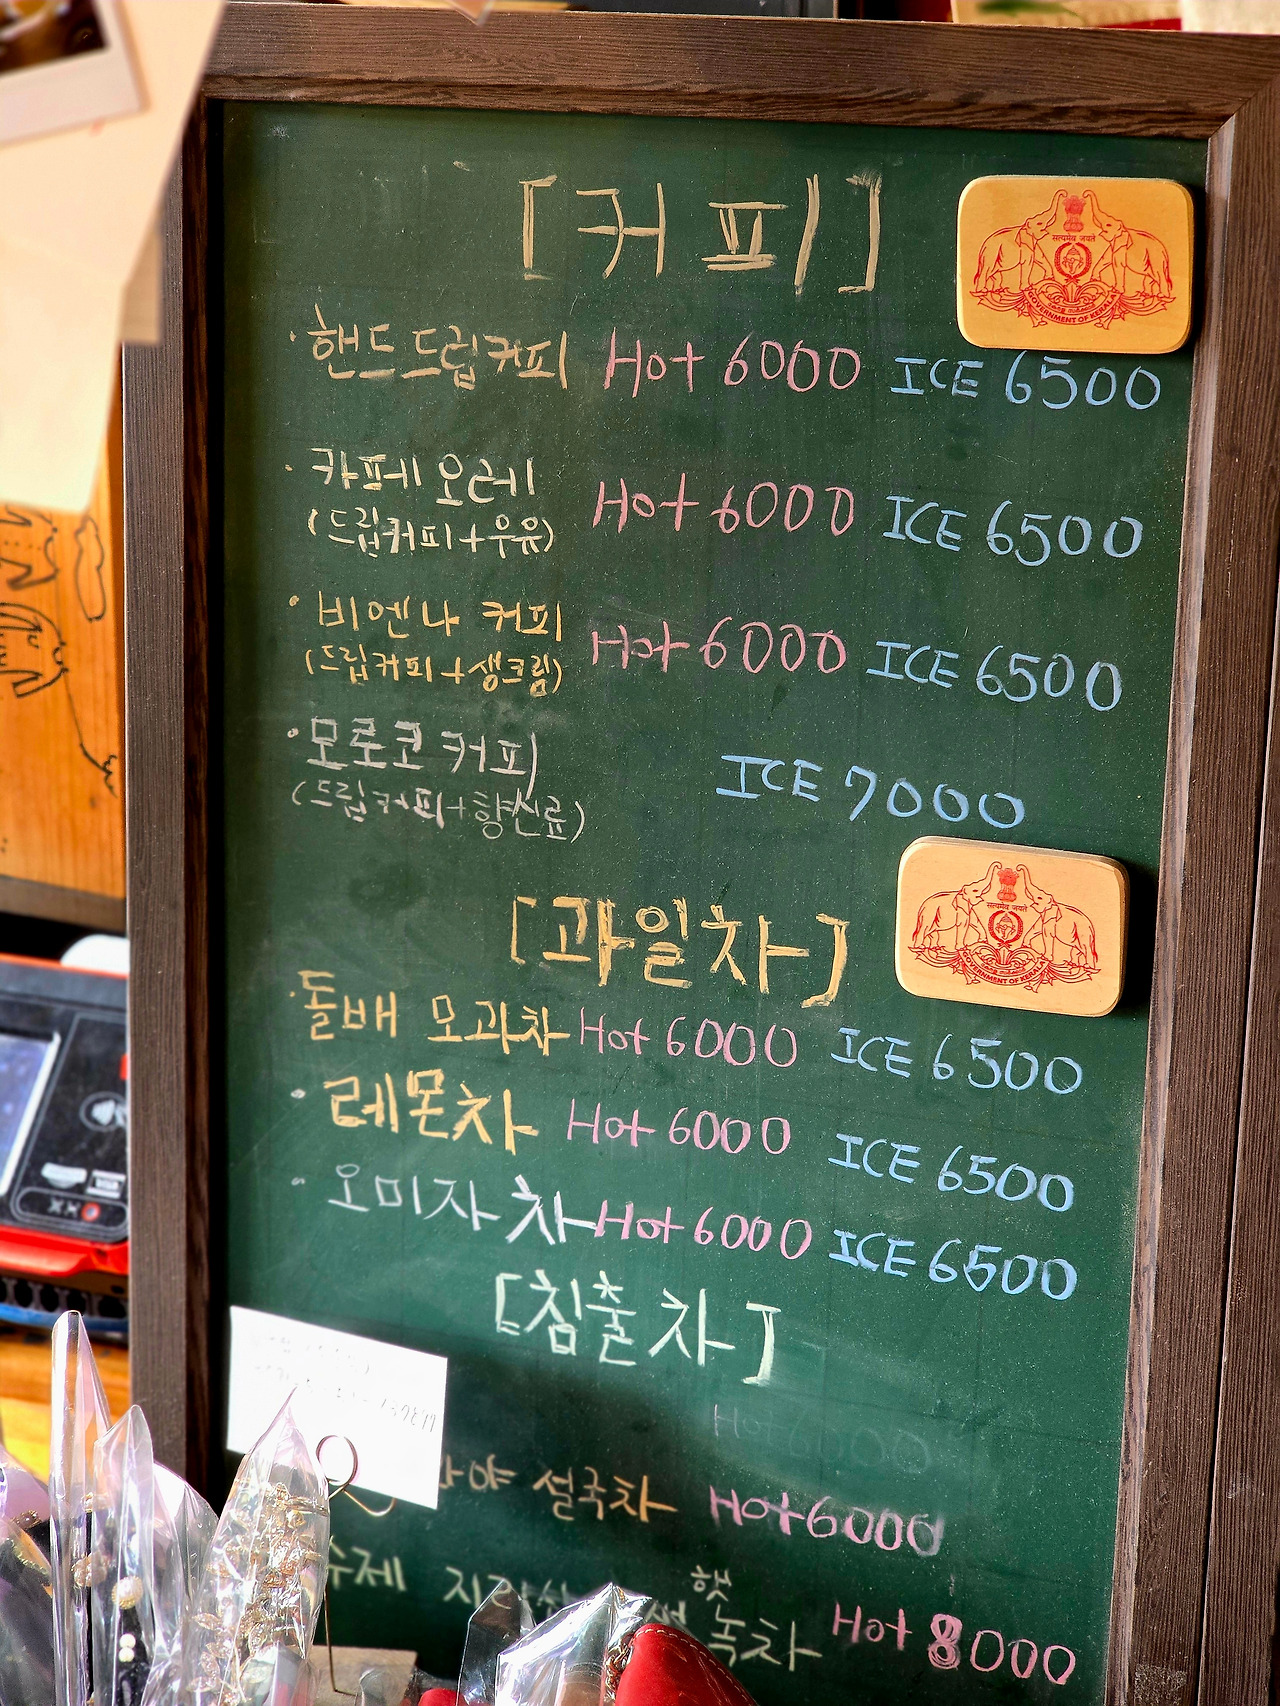 [커피]
सत्यमेव जयते
GOVERNMENT OF KERALA
· 핸드드립커피 Hot 6000 ICE 6500
· 카페 오레 Hot 6000 ICE 6500
(드립커피+우유)
· 비엔나 커피 Hot 6000 ICE 6500
(드립커피+생크림)
· 모로코 커피 ICE 7000
(드립커피+향신료)
[과일차]
सत्यमेव जयते
GOVERNMENT OF KERALA
· 돌배 모과차 Hot 6000 ICE 6500
· 레몬차 Hot 6000 ICE 6500
· 오미자 차 Hot 6000 ICE 6500
[침출차]
Hot 6000
야 설국차 Hot 6000
수제 햇 녹차 Hot 8000